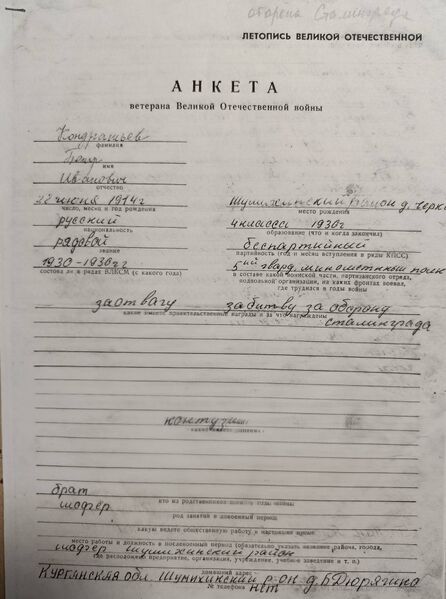 оборона Сталинграда
ЛЕТОПИСЬ ВЕЛИКОЙ ОТЕЧЕСТВЕННОЙ
АНКЕТА
ветерана Великой Отечественной войны
Кондратьев
фамилия
Пётр
имя
Иванович
отчество
22 июня 1914г
число, месяц и год рождения
Шумихинский район д.
место рождения
русский
национальность
4 класса 1930г
образование (что и когда закончил)
рядовой
звание
беспартийный
партийность (год и месяц вступления в ряды КПСС)
1930-1936гг
состоял ли в рядах ВЛКСМ (с какого года)
5ый гвард. минометный полк
в составе какой воинской части, партизанского отряда,
подпольной организации, на каких фронтах воевал,
где трудился в годы войны
за отвагу за битву за оборону
какие имеете правительственные награды и за что награждены
сталинграда
контузия
брат
кто из родственников
шофёр
род занятий в довоенный период
какую ведете общественную работу в настоящее время
место работы и должность в послевоенный период (обязательно указать название района, города,
шофёр шумихинский район
где расположено предприятие, организация, учреждение, учебное заведение и т. п.)
домашний адрес
Курганская обл. Шумихинский р-он д. Б Дюрягино
№ телефона нет